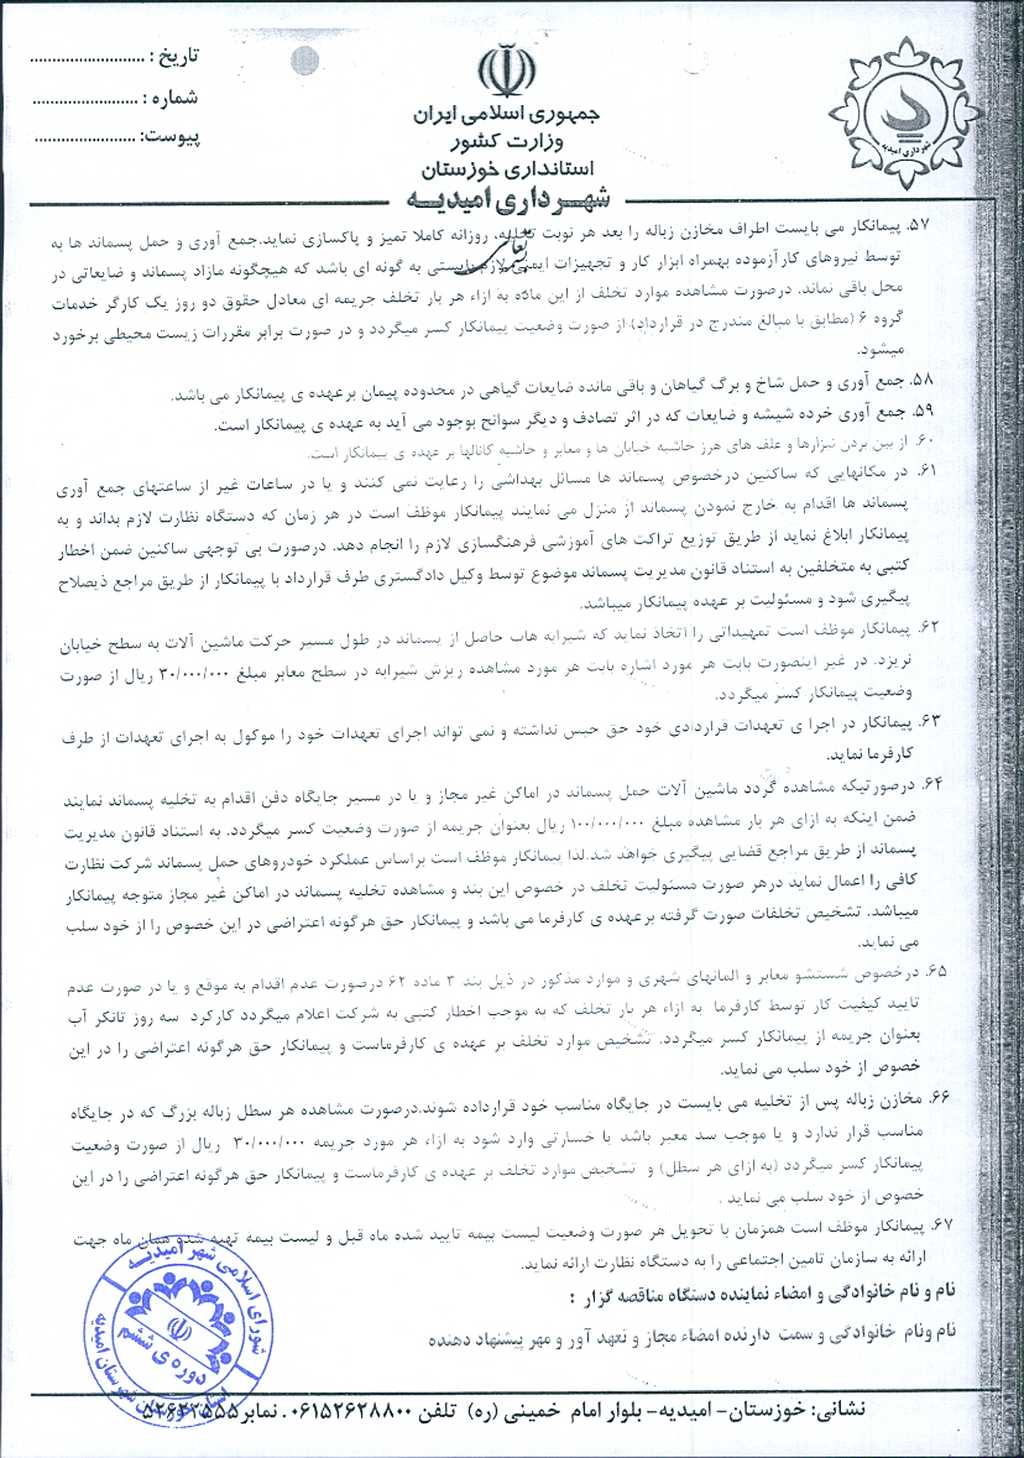 تاریخ : ..........................
شماره : ........................
پیوست: .......................
جمهوری اسلامی ایران
وزارت کشور
استانداری خوزستان
شهرداری امیدیه
شهرداری امیدیه
۵۷. پیمانکار می بایست اطراف مخازن زباله را بعد هر نوبت تخلیه، روزانه کاملا تمیز و پاکسازی نماید.جمع آوری و حمل پسماند ها به
توسط نیروهای کارآزموده بهمراه ابزار کار و تجهیزات ایمنی لازم بایستی به گونه ای باشد که هیچگونه مازاد پسماند و ضایعاتی در
محل باقی نماند. درصورت مشاهده موارد تخلف از این ماده به ازاء هر بار تخلف جریمه ای معادل حقوق دو روز یک کارگر خدمات
گروه ۶ (مطابق با مبالغ مندرج در قرارداد) از صورت وضعیت پیمانکار کسر میگردد و در صورت برابر مقررات زیست محیطی برخورد
میشود.
۵۸. جمع آوری و حمل شاخ و برگ گیاهان و باقی مانده ضایعات گیاهی در محدوده پیمان برعهده ی پیمانکار می باشد.
۵۹. جمع آوری خرده شیشه و ضایعات که در اثر تصادف و دیگر سوانح بوجود می آید به عهده ی پیمانکار است.
۶۰. از بین بردن نیزارها و علف های هرز حاشیه خیابان ها و معابر و حاشیه کانالها بر عهده ی پیمانکار است.
۶۱. در مکانهایی که ساکنین درخصوص پسماند ها مسائل بهداشی را رعایت نمی کنند و یا در ساعات غیر از ساعتهای جمع آوری
پسماند ها اقدام به خارج نمودن پسماند از منزل می نمایند پیمانکار موظف است در هر زمان که دستگاه نظارت لازم بداند و به
پیمانکار ابلاغ نماید از طریق توزیع تراکت های آموزشی فرهنگسازی لازم را انجام دهد. درصورت بی توجهی ساکنین ضمن اخطار
کتبی به متخلفین به استناد قانون مدیریت پسماند موضوع توسط وکیل دادگستری طرف قرارداد با پیمانکار از طریق مراجع ذیصلاح
پیگیری شود و مسئولیت بر عهده پیمانکار میباشد.
۶۲. پیمانکار موظف است تمهیداتی را اتخاذ نماید که شیرابه هاب حاصل از پسماند در طول مسیر حرکت ماشین آلات به سطح خیابان
نریزد. در غیر اینصورت بابت هر مورد اشاره بابت هر مورد مشاهده ریزش شیرابه در سطح معابر مبلغ ۳۰/۰۰۰/۰۰۰ ریال از صورت
وضعیت پیمانکار کسر میگردد.
۶۳. پیمانکار در اجرا ی تعهدات قراردادی خود حق حبس نداشته و نمی تواند اجرای تعهدات خود را موکول به اجرای تعهدات از طرف
کارفرما نماید.
۶۴. درصورتیکه مشاهده گردد ماشین آلات حمل پسماند در اماکن غیر مجاز و یا در مسیر جایگاه دفن اقدام به تخلیه پسماند نمایند
ضمن اینکه به ازای هر بار مشاهده مبلغ ۱۰۰/۰۰۰/۰۰۰ ریال بعنوان جریمه از صورت وضعیت کسر میگردد. به استناد قانون مدیریت
پسماند از طریق مراجع قضایی پیگیری خواهد شد.لذا پیمانکار موظف است براساس عملکرد خودروهای حمل پسماند شرکت نظارت
کافی را اعمال نماید درهر صورت مسئولیت تخلف در خصوص این بند و مشاهده تخلیه پسماند در اماکن غیر مجاز متوجه پیمانکار
میباشد. تشخیص تخلفات صورت گرفته برعهده ی کارفرما می باشد و پیمانکار حق هرگونه اعتراضی در این خصوص را از خود سلب
می نماید.
۶۵. درخصوص شستشو معابر و المانهای شهری و موارد مذکور در ذیل بند ۳ ماده ۶۲ درصورت عدم اقدام به موقع و یا در صورت عدم
تایید کیفیت کار توسط کارفرما به ازاء هر بار تخلف که به موجب اخطار کتبی به شرکت اعلام میگردد کارکرد سه روز تانکر آب
بعنوان جریمه از پیمانکار کسر میگردد. تشخیص موارد تخلف بر عهده ی کارفرماست و پیمانکار حق هرگونه اعتراضی را در این
خصوص از خود سلب می نماید.
۶۶. مخازن زباله پس از تخلیه می بایست در جایگاه مناسب خود قرارداده شوند.درصورت مشاهده هر سطل زباله بزرگ که در جایگاه
مناسب قرار ندارد و یا موجب سد معبر باشد یا خسارتی وارد شود به ازاء هر مورد جریمه ۳۰/۰۰۰/۰۰۰ ریال از صورت وضعیت
پیمانکار کسر میگردد (به ازای هر سطل) و تشخیص موارد تخلف بر عهده ی کارفرماست و پیمانکار حق هرگونه اعتراضی را در این
خصوص از خود سلب می نماید .
۶۷. پیمانکار موظف است همزمان با تحویل هر صورت وضعیت لیست بیمه تایید شده ماه قبل و لیست بیمه تهیه شده همان ماه جهت
ارائه به سازمان تامین اجتماعی را به دستگاه نظارت ارائه نماید.
نام و نام خانوادگی و امضاء نماینده دستگاه مناقصه گزار :
نام ونام خانوادگی و سمت دارنده امضاء مجاز و تعهد آور و مهر پیشنهاد دهنده
شورای اسلامی شهر امیدیه
دوره ی ششم
استان خوزستان شهرستان امیدیه
نشانی: خوزستان- امیدیه- بلوار امام خمینی (ره) تلفن ۰۶۱۵۲۶۲۸۸۰۰. نمابر۵۲۶۲۲۵۵۵